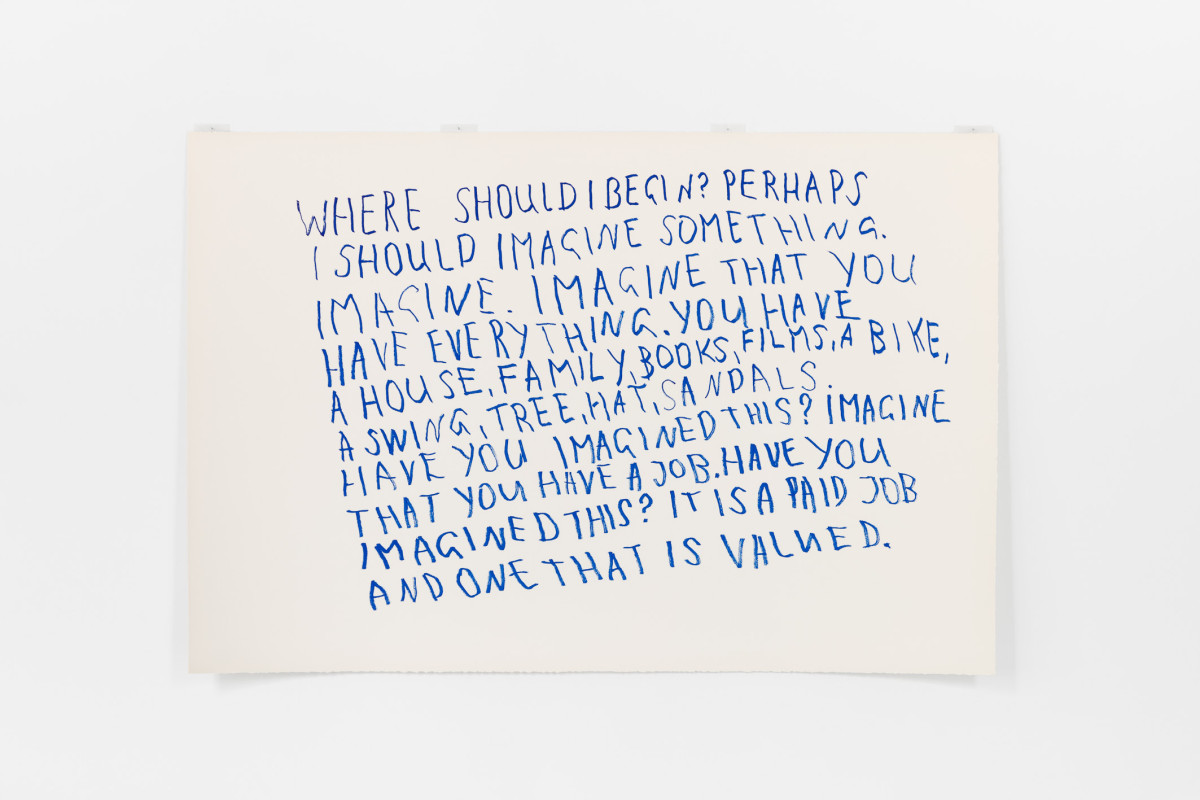 WHERE SHOULD I BEGIN? PERHAPS
I SHOULD IMAGINE SOMETHING.
IMAGINE. IMAGINE THAT YOU
HAVE EVERYTHING. YOU HAVE
A HOUSE, FAMILY, BOOKS, FILMS, A BIKE,
A SWING, TREE, HAT, SANDALS.
HAVE YOU IMAGINED THIS? IMAGINE
THAT YOU HAVE A JOB. HAVE YOU
IMAGINED THIS? IT IS A PAID JOB
AND ONE THAT IS VALUED.